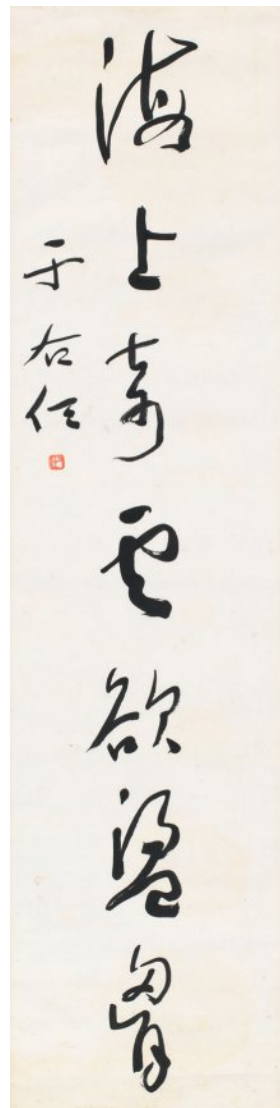 海上奇雲欲盪胷
于右任